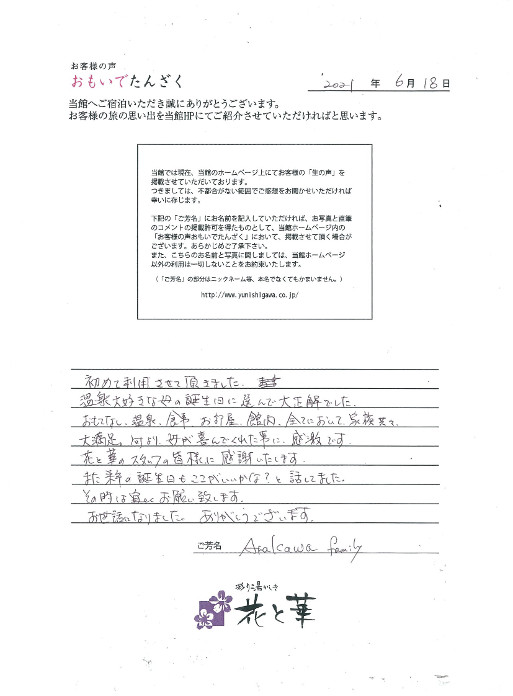 お客様の声
おもいでたんざく
'2021 年 6月 18日
当館へご宿泊いただき誠にありがとうございます。
お客様の旅の思い出を当館HPにてご紹介させていただければと思います。
当館では現在、当館のホームページ上にてお客様の「生の声」を
掲載させていただいております。
つきましては、不都合がない範囲でご感想をお聞かせいただければ
幸いに存じます。
下記の「ご芳名」にお名前を記入していただければ、お写真と直筆
のコメントの掲載許可を得たものとして、当館ホームページ内の
「お客様の声おもいでたんざく」において、掲載させて頂く場合が
ございます。あらかじめご了承下さい。
また、こちらのお名前と写真に関しましては、当館ホームページ
以外の利用は一切しないことをお約束いたします。
(「ご芳名」の部分はニックネーム等、本名でなくてもかまいません。)
http://www.yunishigawa.co.jp/
初めて利用させて頂きました。
温泉大好きな母の誕生日に選んで大正解でした。
おもてなし、温泉、食事、お部屋、館内、全てにおいて家族共々、
大満足。何より、母が喜んでくれた事に、感激です。
花と華のスタッフの皆様に感謝いたします。
また来年の誕生日もここがいいかな?と話してました。
その時は宜しくお願い致します。
お世話になりました。ありがとうございます。
ご芳名 Arakawa family
彩り湯かしき
花と華